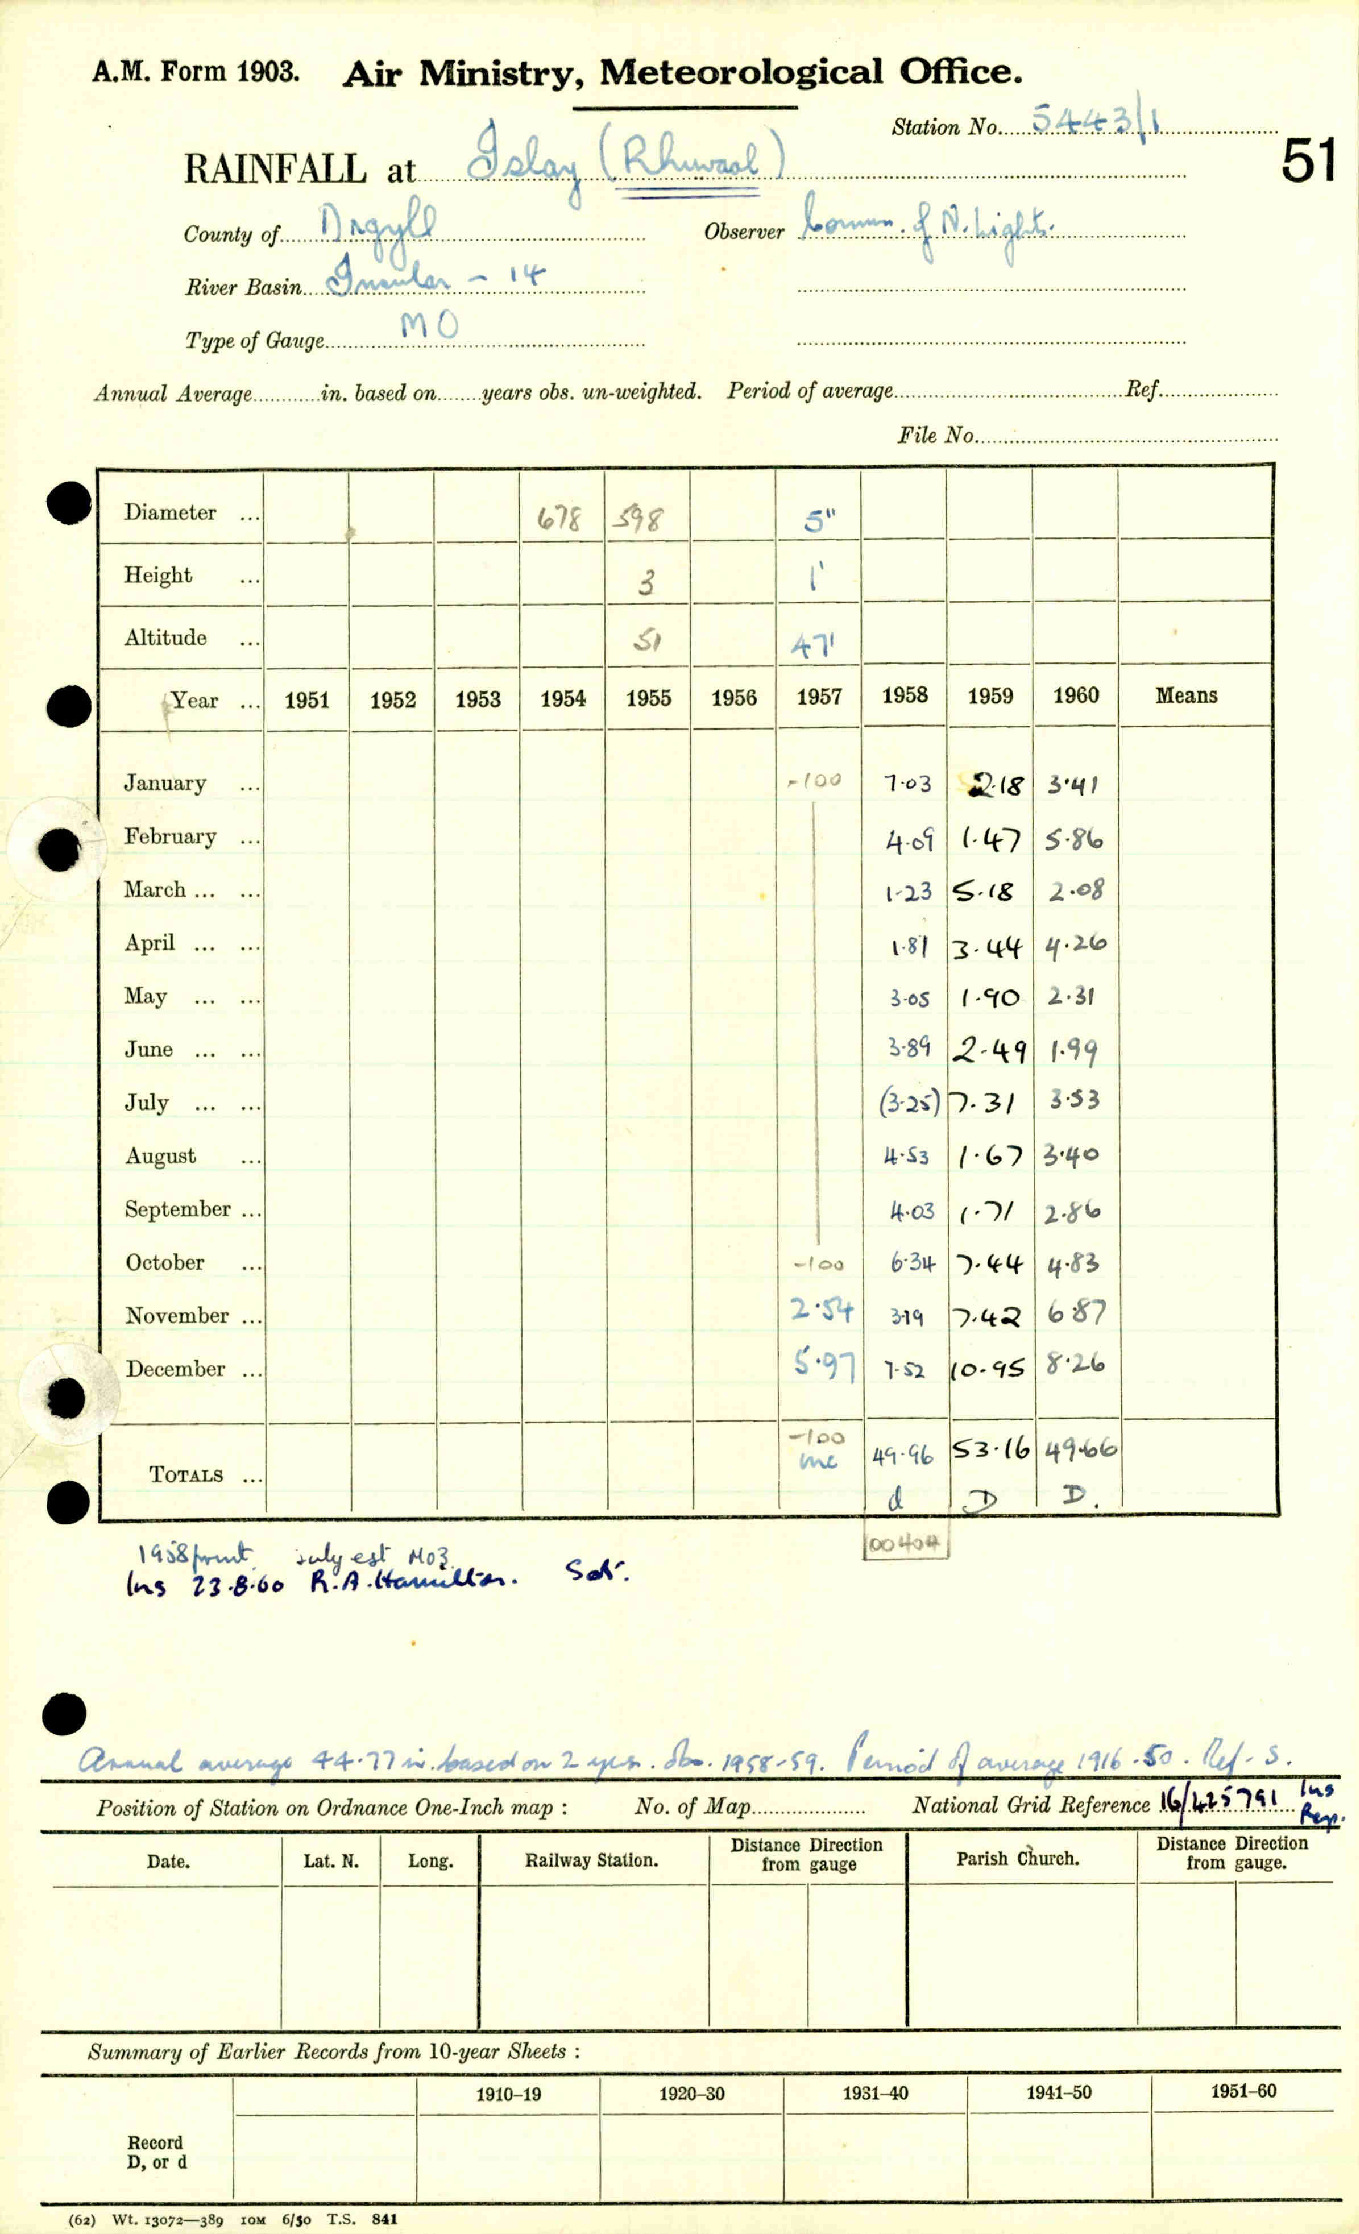 A.M. Form 1903. Air Ministry, Meteorological Office.
Station No. 5443/1
51
RAINFALL at Islay (Rhuvaal)
County of Argyll Observer Comm. of N. Lights.
River Basin Insular - 14
Type of Gauge MO
Annual Average in. based on years obs. un-weighted. Period of average Ref.
File No.
Diameter ... 678 598 5"
Height ... 3 1'
Altitude ... 51 47'
Year ... 1951 1952 1953 1954 1955 1956 1957 1958 1959 1960 Means
January ... -100 7.03 2.18 3.41
February ... 4.09 1.47 5.86
March ... ... 1.23 5.18 2.08
April ... ... 1.81 3.44 4.26
May ... ... 3.05 1.90 2.31
June ... ... 3.89 2.49 1.99
July ... ... (3.25) 7.31 3.53
August ... 4.53 1.67 3.40
September ... 4.03 1.71 2.86
October ... -100 6.34 7.44 4.83
November ... 2.54 3.19 7.42 6.87
December ... 5.97 7.52 10.95 8.26
-100
TOTALS ... inc 49.96 53.16 49.66
d D D.
00404
1958 print July est MO3
Ins 23.8.60 R.A. Hamilton. Sat.
Annual average 44.77 in. based on 2 yrs. obs. 1958-59. Period of average 1916-50. Ref - S.
Position of Station on Ordnance One-Inch map : No. of Map National Grid Reference 16/425791 Ins Rep.
Date. Lat. N. Long. Railway Station. Distance Direction from gauge Parish Church. Distance Direction from gauge.
Summary of Earlier Records from 10-year Sheets :
1910-19 1920-30 1931-40 1941-50 1951-60
Record
D, or d
(62) Wt. 13072—389 10M 6/50 T.S. 841